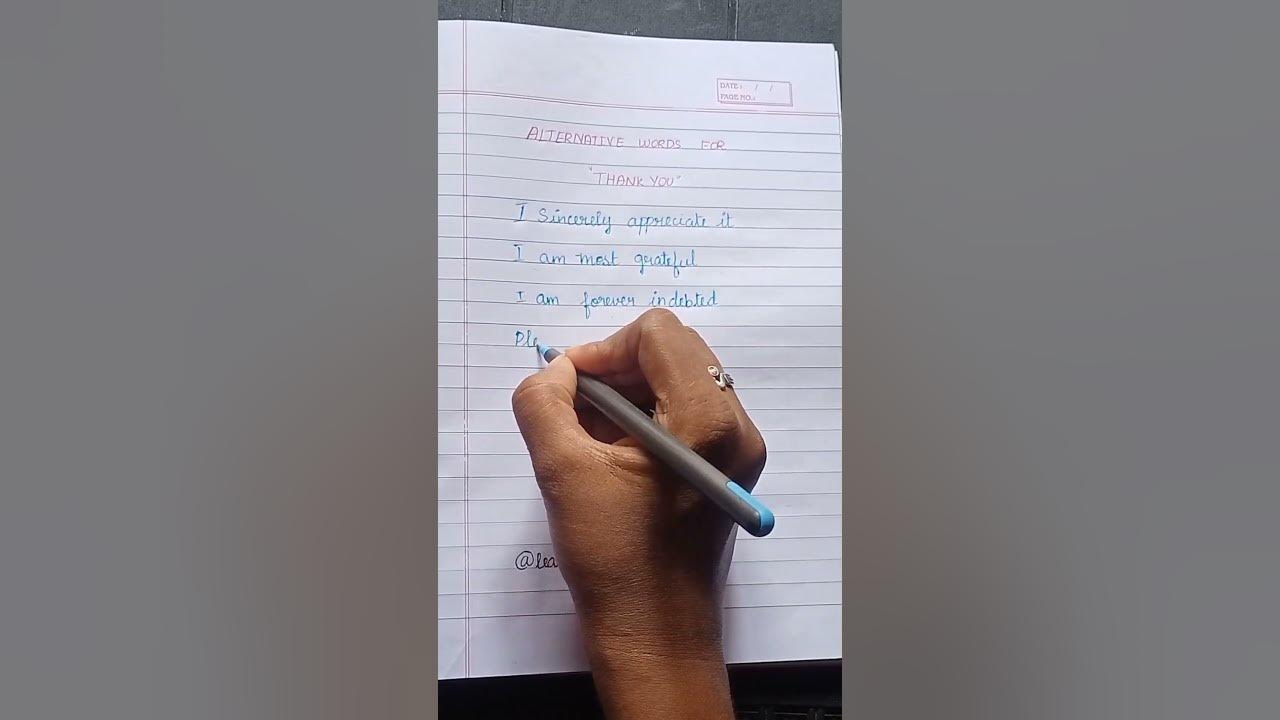 DATE: / /
PAGE NO.:
ALTERNATIVE WORDS FOR
"THANK YOU"
I Sincerely appreciate it
I am most grateful
I am forever indebted
Ple
@lea